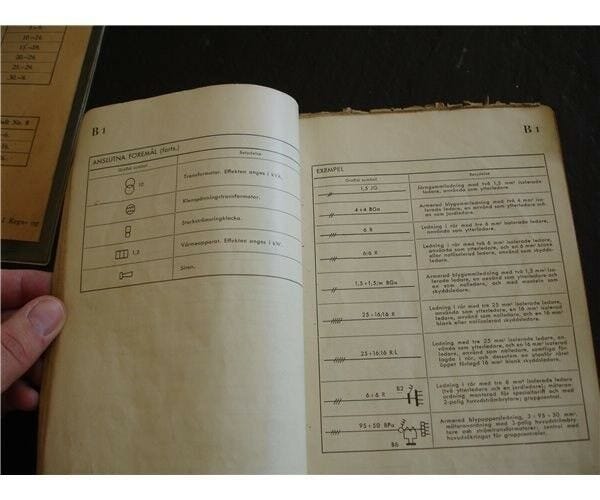 5.–26.
10.–26.
15.–26.
20.–26.
25.–26.
30.–6.
B 1
ANSLUTNA FÖREMÅL (forts.)
Grafisk symbol
Betydelse
10
Transformator. Effekten anges i kVA.
Klenspänningstransformator.
Starkströmsringklocka.
1,2
Värmeapparat. Effekten anges i kW.
Siren.
B 1
EXEMPEL
Grafisk symbol
Betydelse
1,5 JG
Järngummiledning med två 1,5 mm² isolerade
ledare, använda som ytterledare
4+4 BGa
Armerad blygummiledning med två 4 mm² isolerade
ledare, en använd som ytterledare och
en som jordledare.
6 R
Ledning i rör med tre 6 mm² isolerade
ledare, använda som ytterledare.
6/6 R
Ledning i rör med två 6 mm² isolerade
ledare, använda som ytterledare, och en 6 mm² blank
eller nollisolerad ledare, använd som skyddsledare.
1,5+1,5/m BGa
Armerad blygummiledning med två 1,5 mm² isolerade
ledare, en använd som ytterledare och
en som nolledare, och med manteln som
skyddsledare.
25+16/16 R
Ledning i rör med tre 25 mm² isolerade ledare,
använda som ytterledare, en 16 mm² isolerad
ledare, använd som nolledare, och en 16 mm²
blank eller nollisolerad skyddsledare.
25+16/16 R L
Ledning med tre 25 mm² isolerade ledare, använda
som ytterledare, en 16 mm² isolerad
ledare, använd som nolledare, samtliga förlagda
i rör, och dessutom en utanför röret
öppet förlagd 16 mm² blank skyddsledare.
6+6 R
B2
Ledning i rör med tre 6 mm² isolerade ledare
(två ytterledare och en jordledare); mätaranordning
monterad för specialtariff och med
2-polig huvudströmbrytare; gruppcentral.
95+50 BPa
B6
Armerad blypappersledning, 3×95+50 mm²,
mätaranordning med 3-polig huvudströmbrytare
och strömtransformatorer; central med
huvudsäkringar för gruppcentraler.